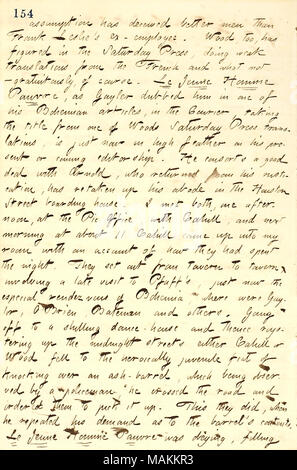 154
assumption has deceived better men than
Frank Leslie's ex-employe. Wood too, has
figured in the Saturday Press, doing weak
translations from the French and what not
- gratuitously of course. Le Jeune Homme
Pauvre, as Gayler dubbed him in one of
his Bohemian articles, in the Courier taking
the title from one of Woods Saturday Press trans-
lations, is just now in high feather in his pre-
sent or coming editorship. He consorts a good
deal with Arnold, who returned from his rusti-
cation, has retaken up his abode in the Houston
Street boarding house. I met both, one after-
noon, at the Pic Office, with Cahill, and next
morning at about 11 Cahill came up into my
room with an account of how they had spent
the night. They set out from tavern to tavern
involving a late visit to Pfaff's, just now the
especial rendezvous of Bohemia where were Gay-
ler, O'Brien, Bateman and others. Going
off to a shilling dance-house and thence roy-
stering up the midnight streets either Cahill or
Wood fell to the heroically juvenile feat of
knocking over an ash-barrel, which being obser-
ved by a policeman he crossed the road and
ordered them to pick it up. This they did, when
he repeated his demand as to the barrel's contents.
Le Jeune Homme Pauvre was drying, filling
alamy
Image ID: MAKKR3
www.alamy.com